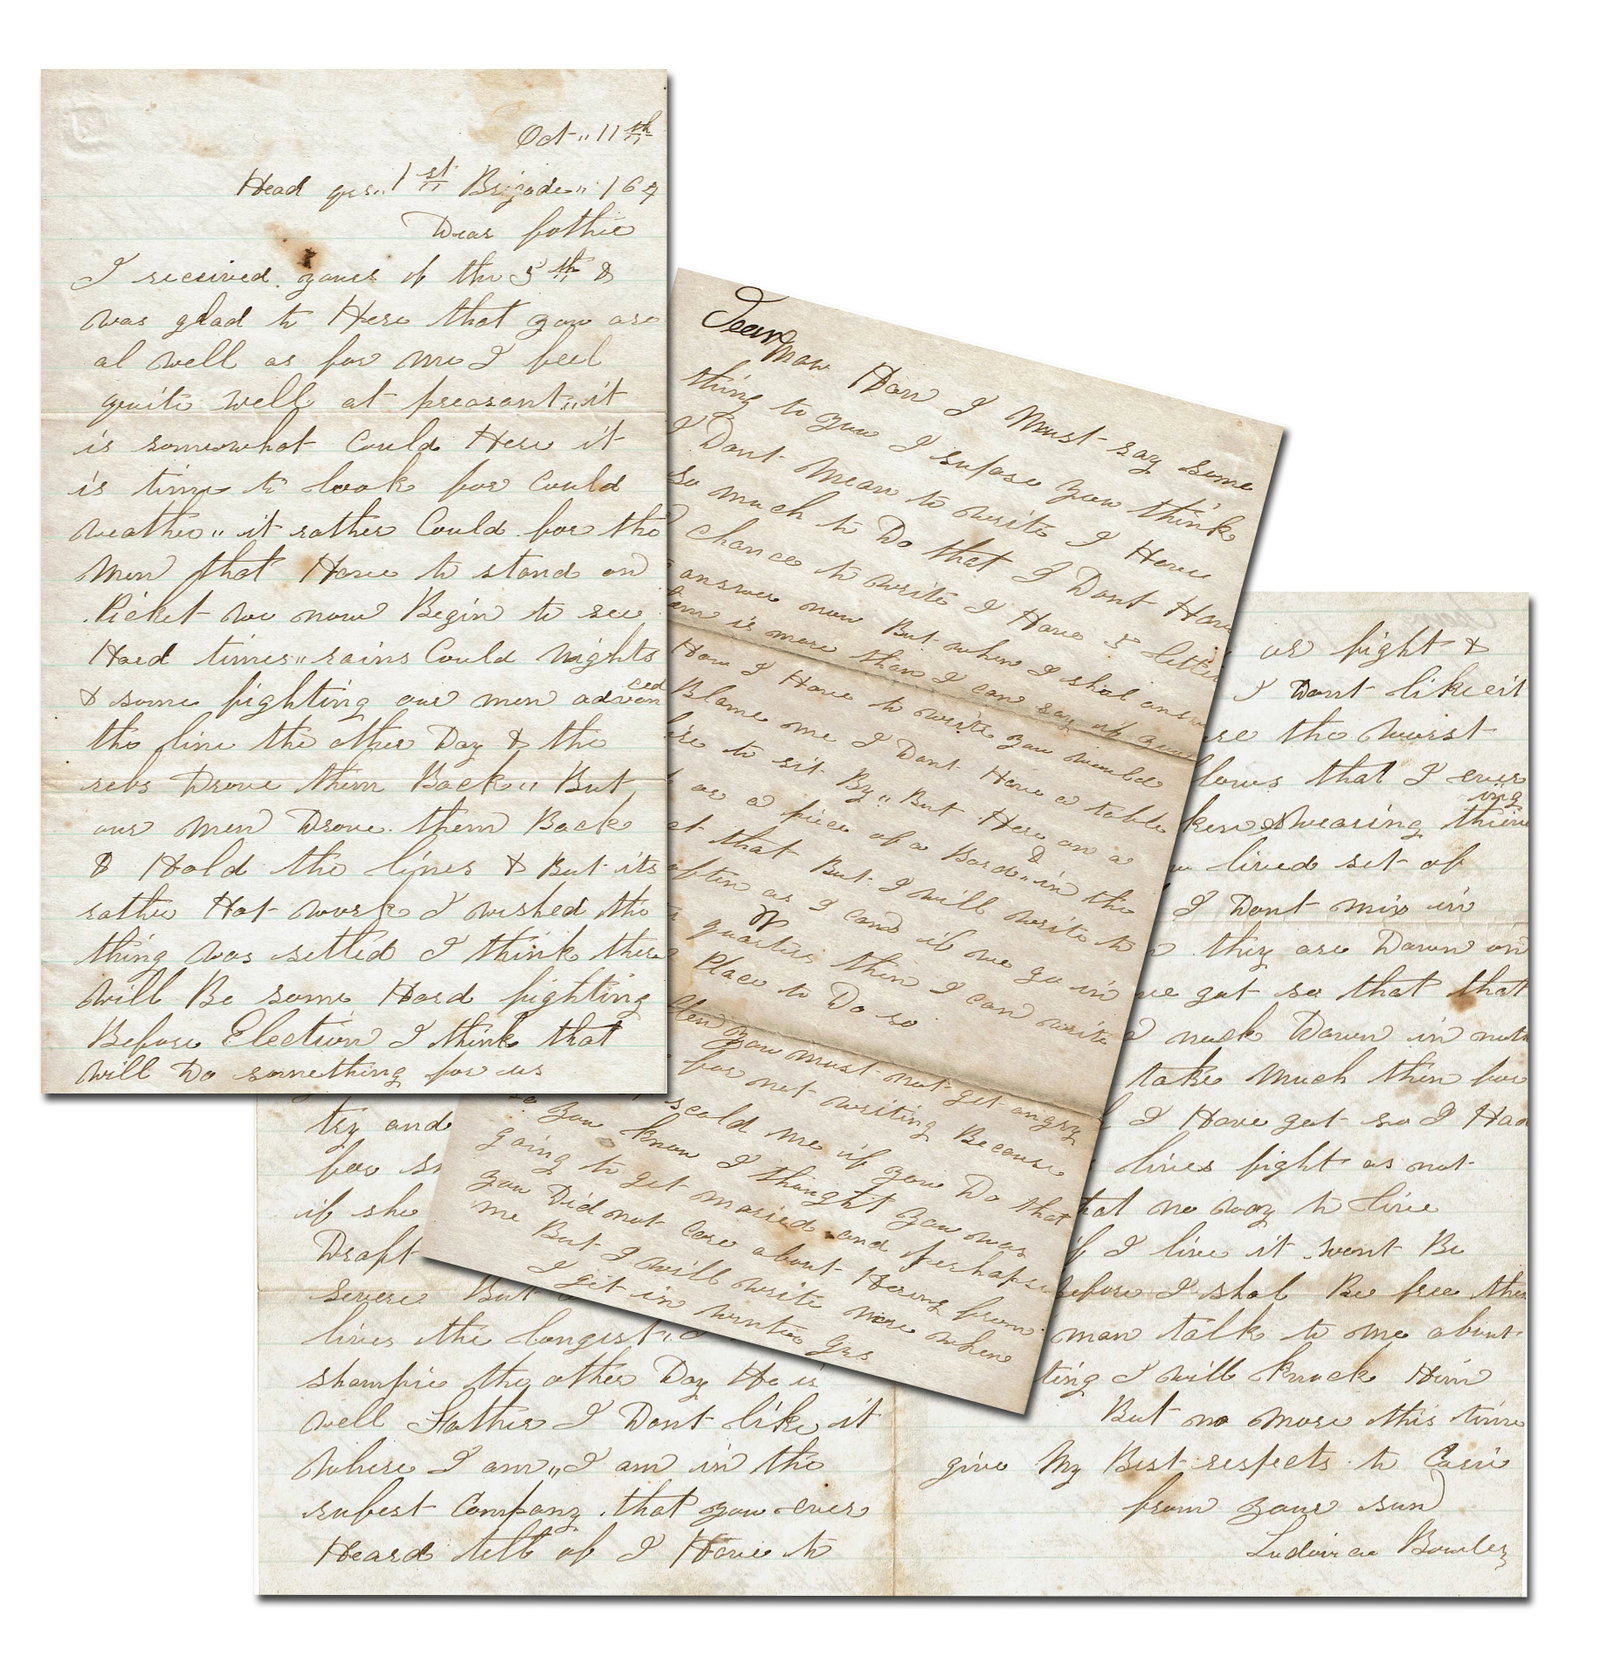 Oct 11th
Head qrs 1st Brigade 164
Dear fathie
I received yours of the 5th &
was glad to Here that you are
al well as for me I feel
quite well at preasant it
is somewhat Could Here it
is time to look for Could
weather it rather Could for the
Men that Have to stand on
Picket we now Begin to see
Hard times rains Could nights
& some fighting our men advanced
the line the other Day & the
rebs Drove them Back But
our Men Drove them Back
& Hold the lines & But its
rather Hot work I wished the
thing was setled I think there
will Be some Hard fighting
Before Election I think that
will Do something for us
Dear
Mow How I Must say some
thing to you I supose you think
I Dont Mean to write I Have
so much to Do that I Dont Have
chance to write I Have 5 letter
answer now But when I shal answ
is more than I can say
How I Have to write you would
Blame me I Dont Have a table
to sit By But Here on a
or a piece of a Board in the
that But I will write to
often as I can if we go in
quarters then I can write
Place to Do so
you must not get angry
for not writing Because
scold me if you Do that
you know I thought you was
going to get maried and perhaps
you Did not care about Hering from
me But I will write more when
I get in wentie qrs
try and
for
if she
Draft
severe But
lives the longest
shampire the other Day He is
well Father I Dont like it
where I am I am in the
rufest Company that you ever
Heard tell of I Have to
or fight &
I Dont like it
the wurst
that I ever
swearing thieving
lived set of
I Dont mix in
they are Down on
got so that that
neck Down in
take Much then for
I Have got so I Had
lives fight as not
that no way to live
if I live it wont Be
before I shal Be free then
man talk to me about
ting I will knock Him
But no more this time
give My Best respects to Casie
from your sun
Ludovica Bowley